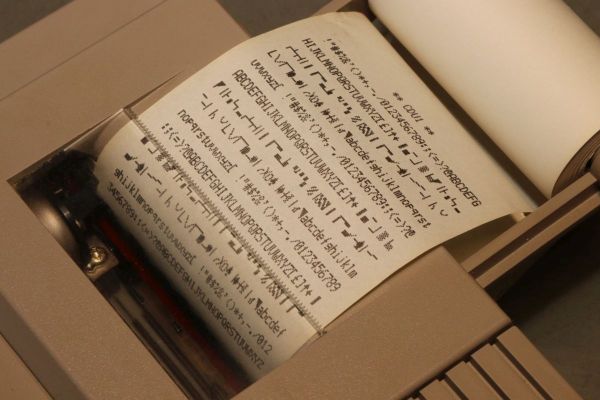 ## CDU1 ##
!"#$%&'()*+,-./0123456789:;<=>?@ABCDEFG
HIJKLMNOPQRSTUVWXYZ[£]↑←
abcdefghijklmnopqrst
uvwxyz !"#$%&'()*+,-./0123456789:;<=>?@
ABCDEFGHIJKLMNOPQRSTUVWXYZ[£]↑←
abcdefghijklm
nopqrstuvwxyz !"#$%&'()*+,-./0123456789
:;<=>?@ABCDEFGHIJKLMNOPQRSTUVWXYZ[£]↑←
abcdef
ghijklmnopqrstuvwxyz !"#$%&'()*+,-./012
3456789:;<=>?@ABCDEFGHIJKLMNOPQRSTUVWXYZ